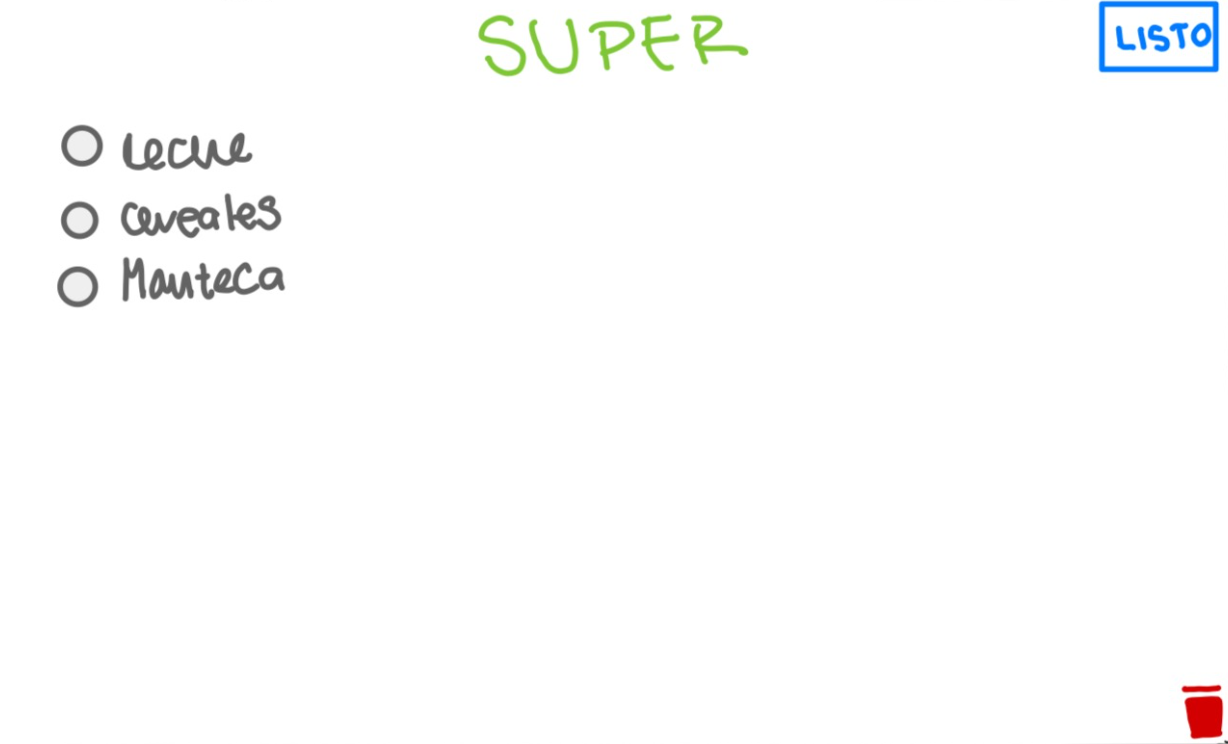 SUPER
LISTO
Leche
Cereales
Manteca